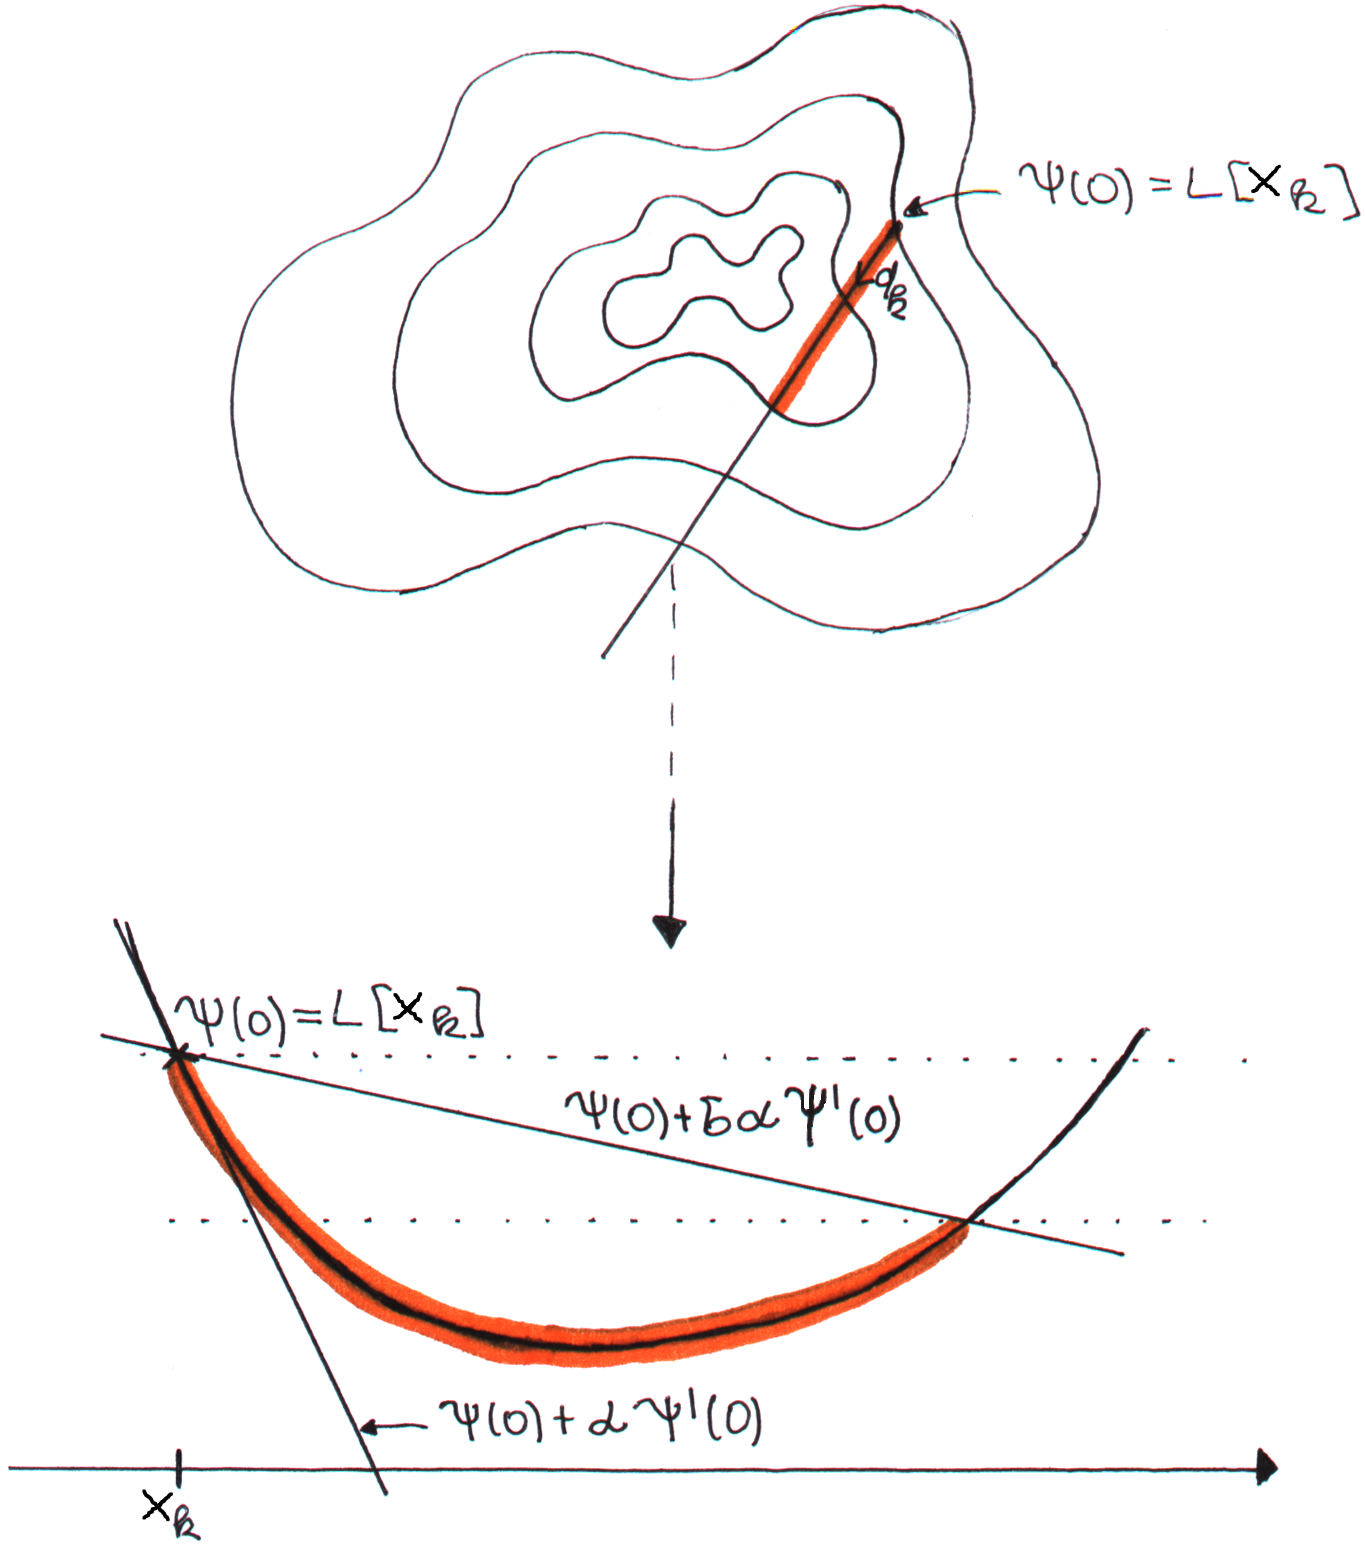 ψ(0) = L[x_k]
d_k
ψ(0) = L[x_k]
ψ(0) + δαψ'(0)
ψ(0) + αψ'(0)
x_k